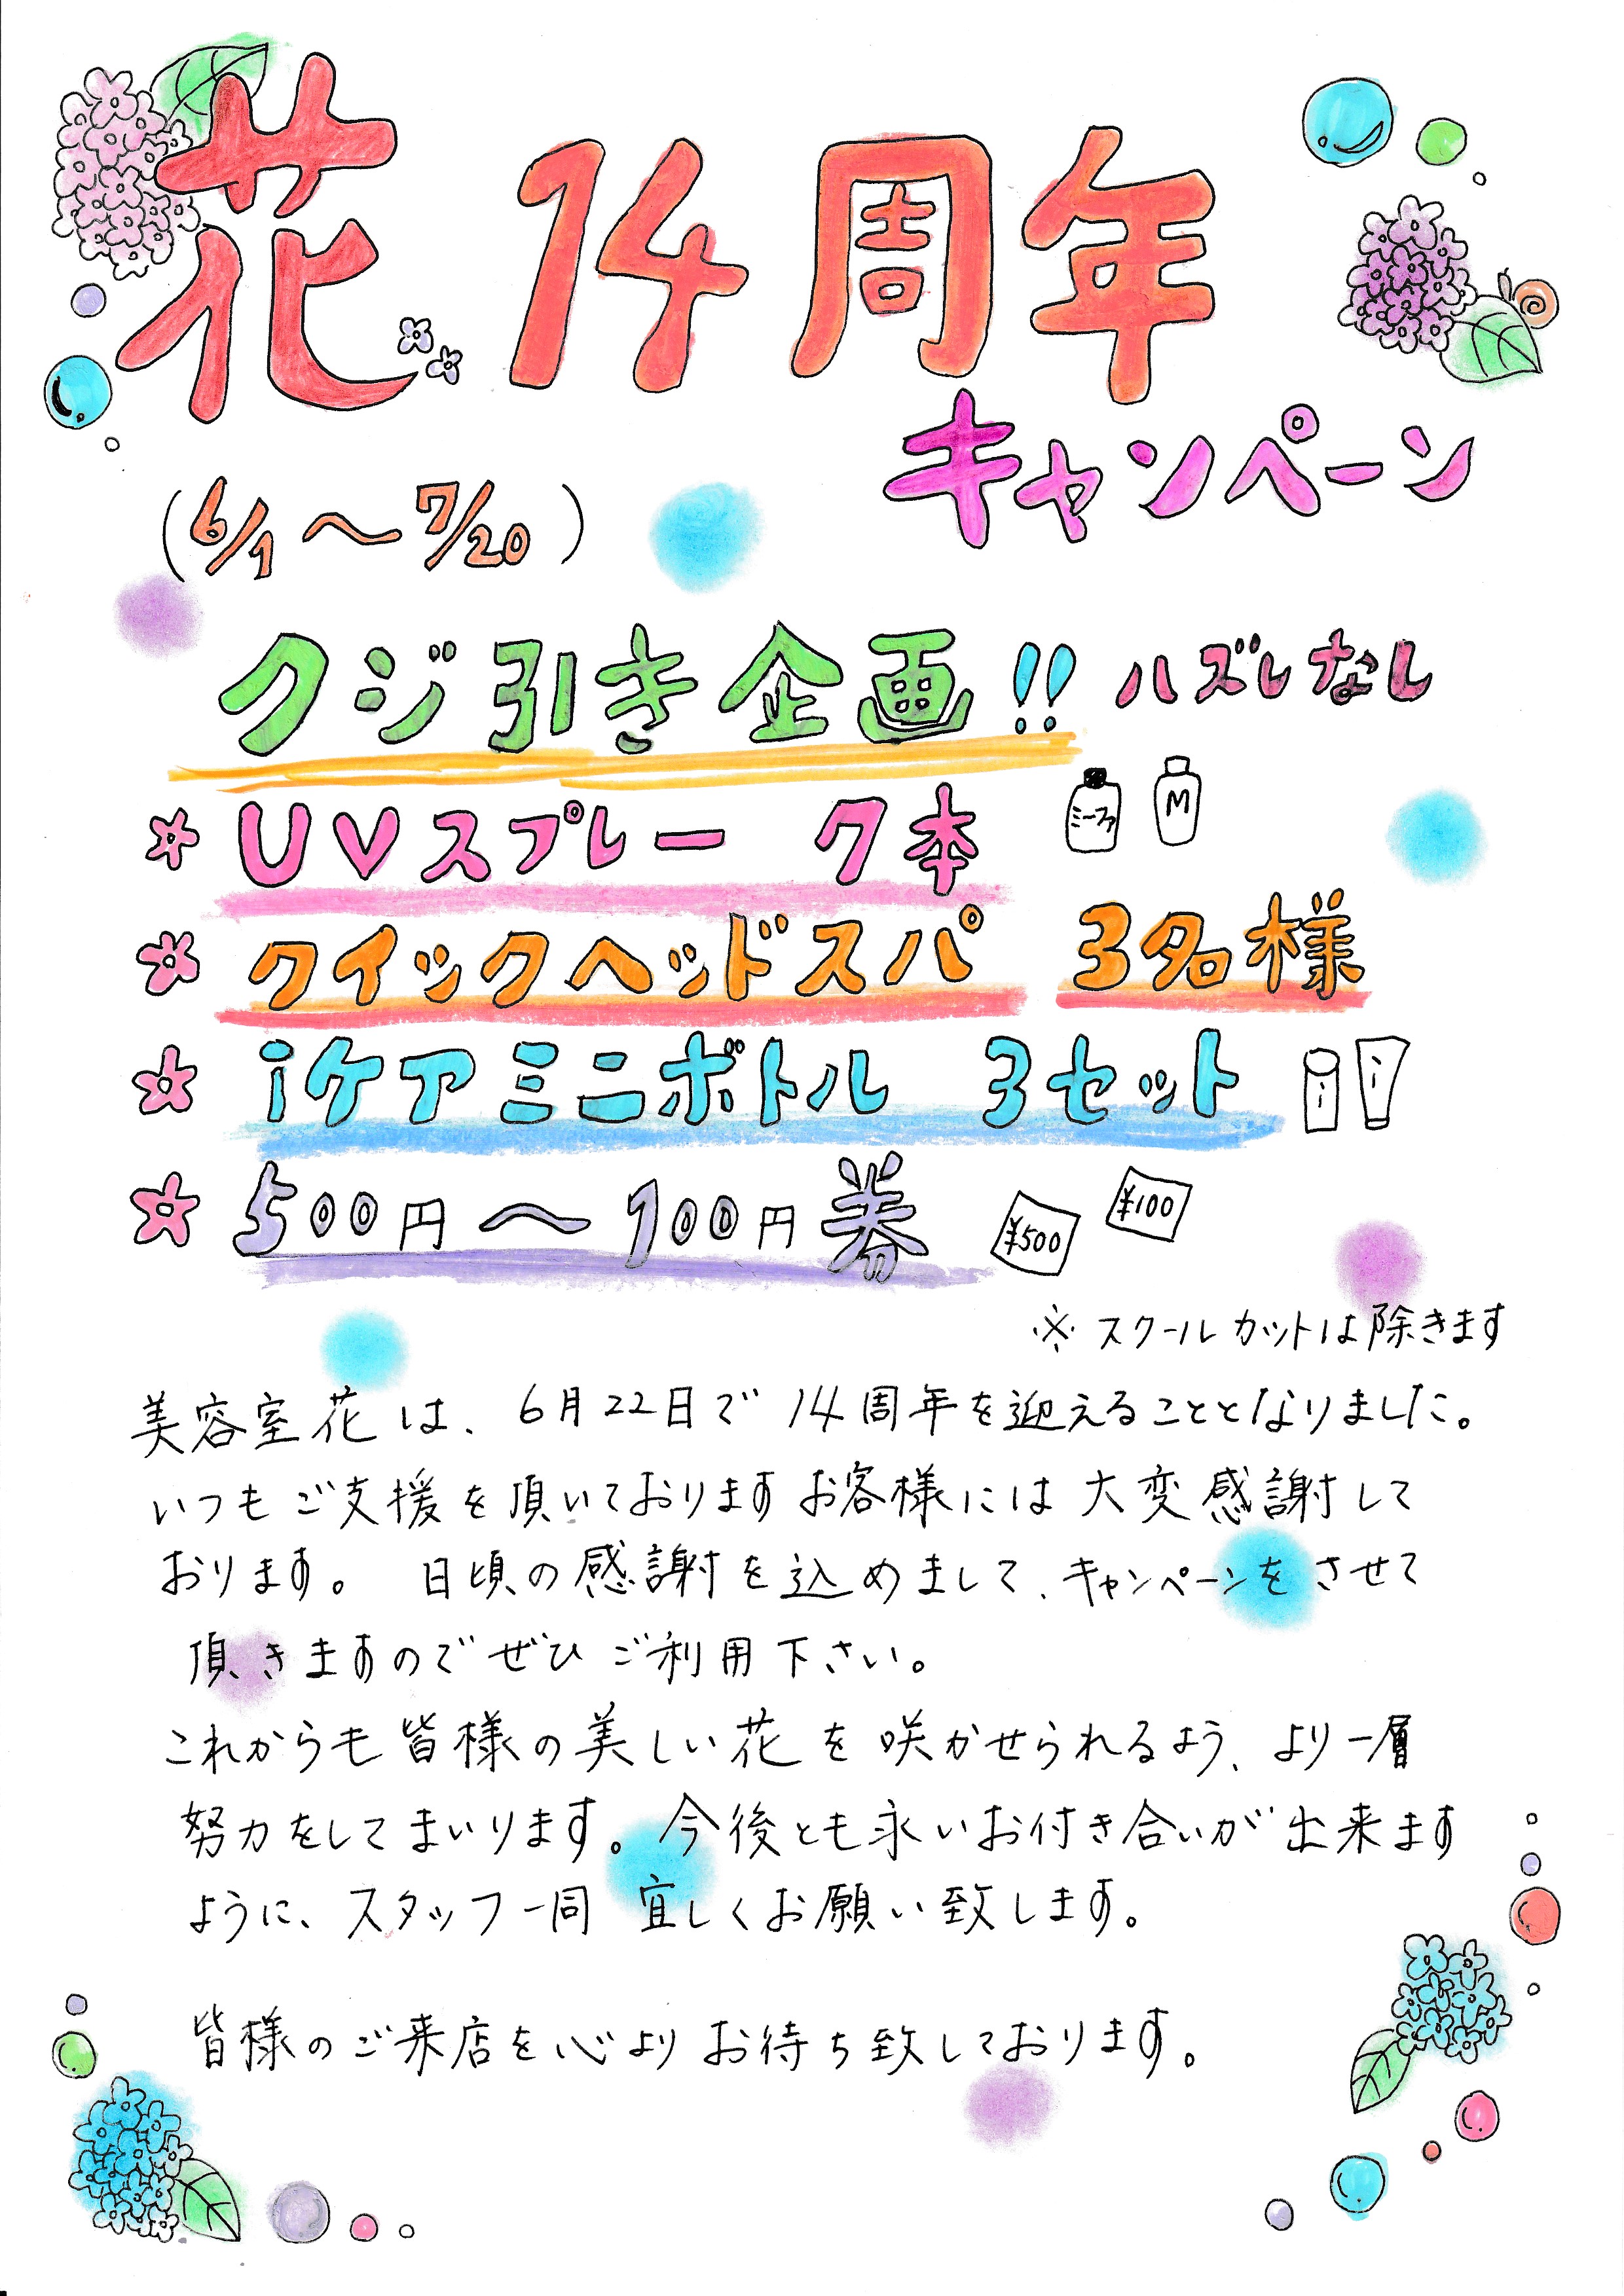 花 14周年
キャンペーン
(6/1〜7/20)
クジ引き企画!! ハズレなし
UVスプレー 7本
ミーファ
M
クイックヘッドスパ 3名様
iケアミニボトル 3セット
i
i
500円〜100円券
¥500
¥100
※スクールカットは除きます
美容室花は、6月22日で14周年を迎えることとなりました。
いつもご支援を頂いておりますお客様には大変感謝して
おります。 日頃の感謝を込めまして、キャンペーンをさせて
頂きますのでぜひご利用下さい。
これからも皆様の美しい花を咲かせられるよう、より一層
努力をしてまいります。今後とも永いお付き合いが出来ます
ように、スタッフ一同 宜しくお願い致します。
皆様のご来店を心よりお待ち致しております。